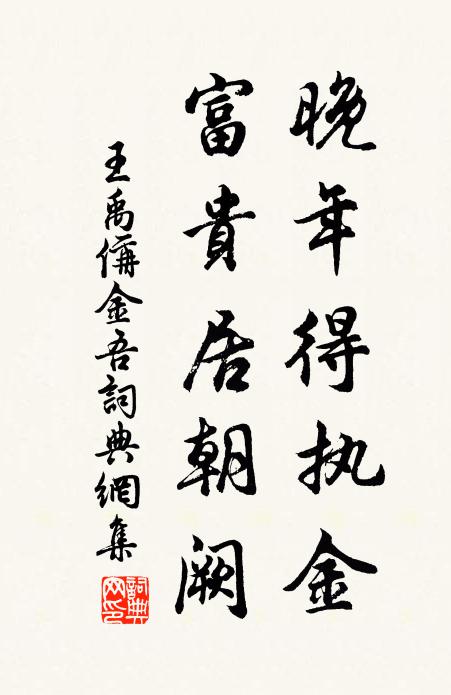 晚年得执金
富貴居朝阙
王禹偁金吾詞典網集
詞典网印